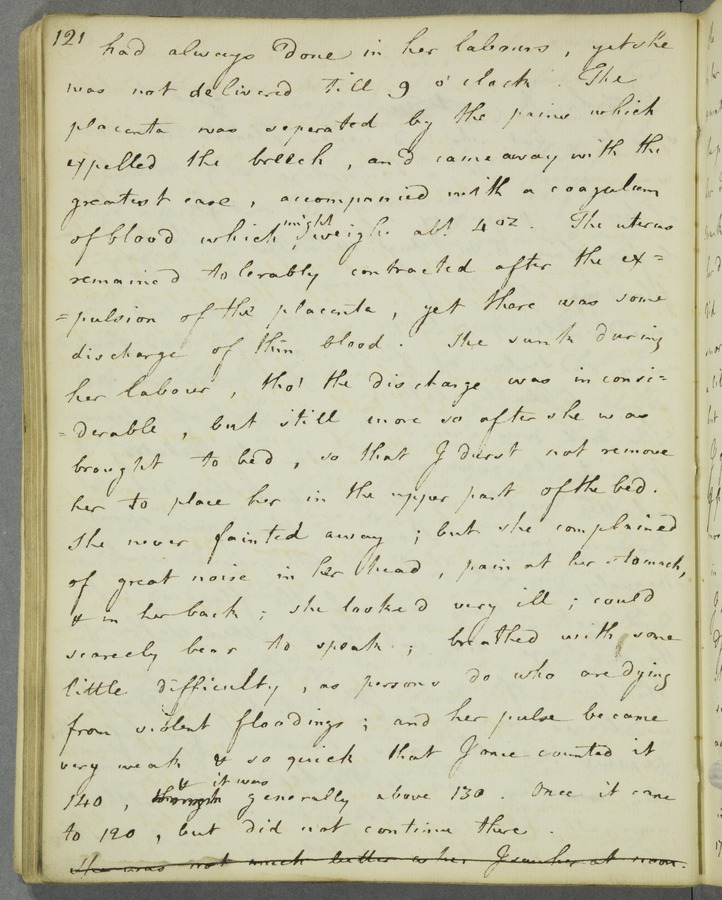 121 had always done in her labours, yet she
was not delivered till 9 o'clock. The
placenta was seperated by the pains which
expelled the breech, and came away with the
greatest ease, accompanied with a coagulum
of blood which might weigh abt. 4 oz. The uterus
remained tolerably contracted after the ex=
=pulsion of the placenta, yet there was some
discharge of thin blood. She sunk during
her labour, tho' the discharge was inconsi=
=derable, but still more so after she was
brought to bed, so that I durst not remove
her to place her in the upper part of the bed.
She never fainted away; but she complained
of great noise in her head, pain at her stomach,
& in her back; she looked very ill; could
scarcely bear to speak; breathed with some
little difficulty, as persons do who are dying
from violent floodings; and her pulse became
very weak & so quick that I once counted it
140, though & it was generally above 130. Once it came
to 120, but did not continue there.
She was not much better when I saw her at noon.